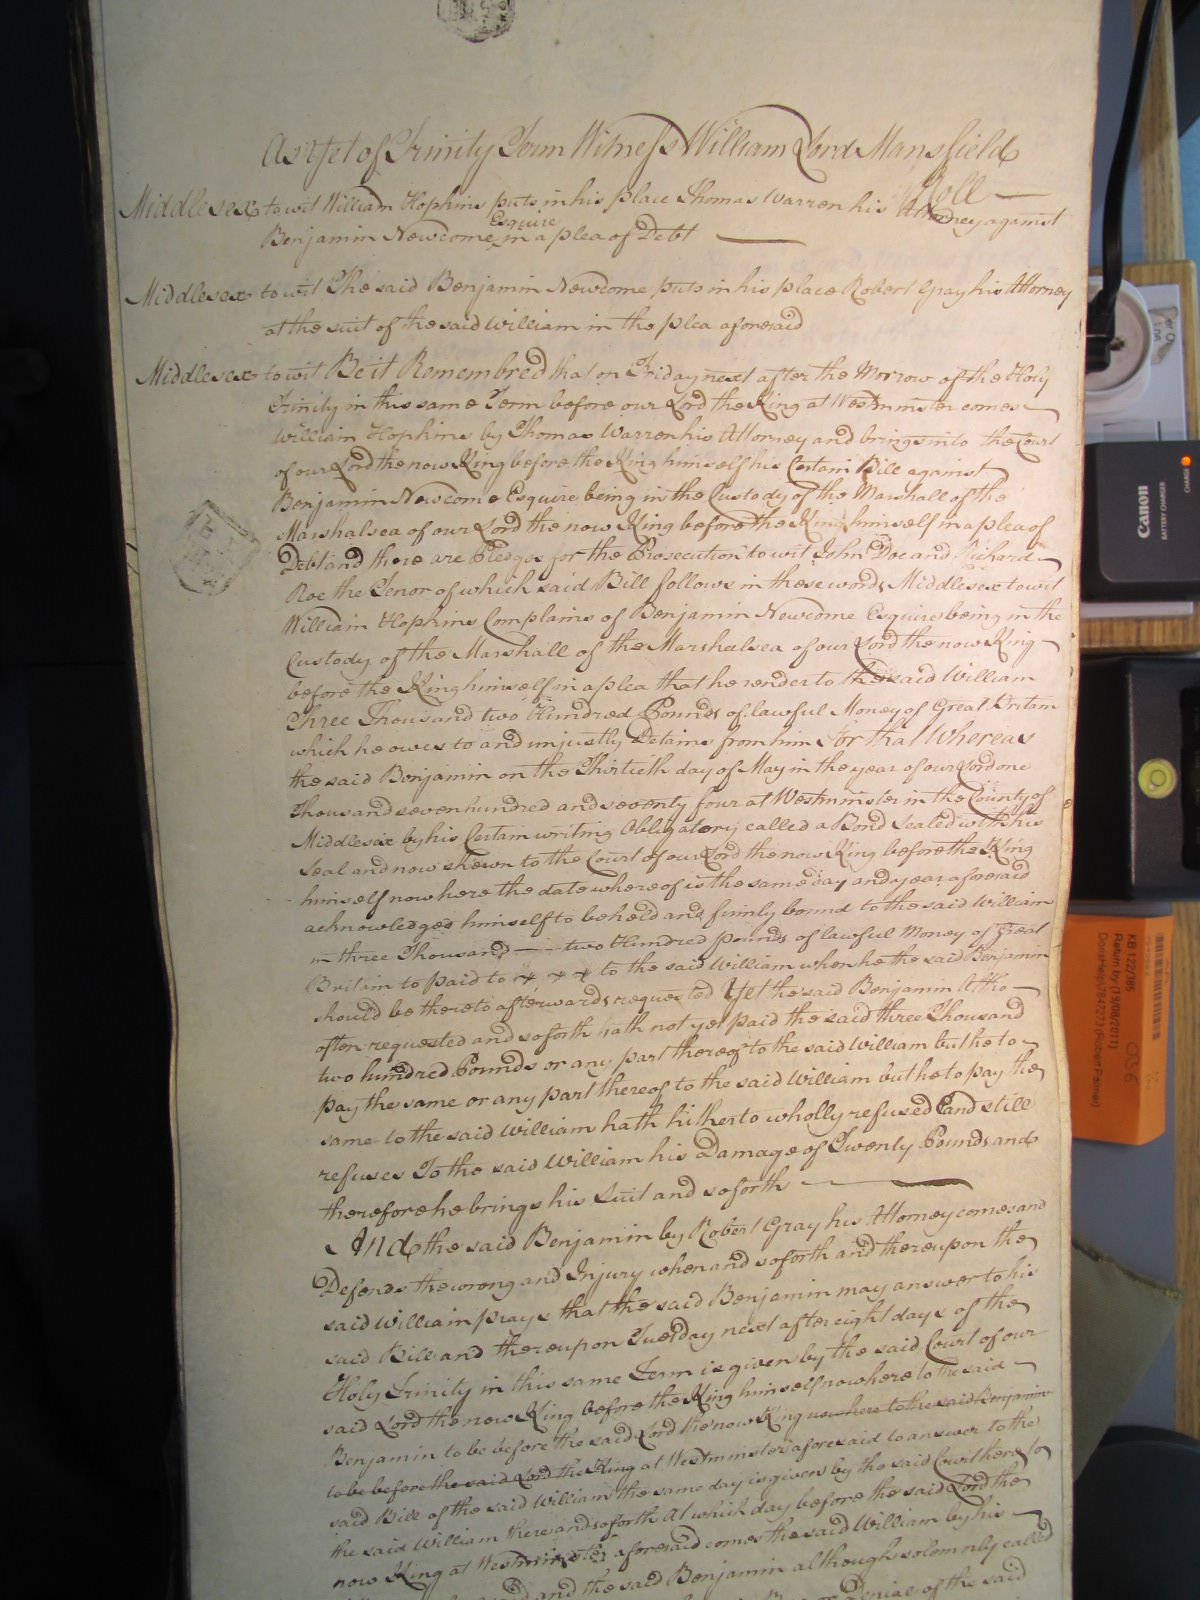 As yet of Trinity Term Witness William Lord Mansfield
Roll
Middlesex to wit William Hopkins puts in his place Thomas Warren his Attorney against
Benjamin Newcome Esquire in a plea of Debt
Middlesex to wit The said Benjamin Newcome puts in his place Robert Gray his Attorney
at the suit of the said William in the plea aforesaid
Middlesex to wit Be it Remembred that on Friday next after the Morrow of the Holy
Trinity in this same Term before our Lord the King at Westminster comes
William Hopkins by Thomas Warren his Attorney and brings into the Court
of our Lord the now King before the King himself his Certain Bill against
Benjamin Newcome Esquire being in the Custody of the Marshall of the
Marshalsea of our Lord the now King before the King himself in a plea of
Debt and there are Pledges for the Prosecution to wit John Doe and Richard
Roe the Tenor of which said Bill follows in these words Middlesex to wit
William Hopkins Complains of Benjamin Newcome Esquire being in the
Custody of the Marshall of the Marshalsea of our Lord the now King
before the King himself in a plea that he render to the said William
Three Thousand two Hundred Pounds of lawful Money of Great Britain
which he owes to and unjustly Detains from him For that Whereas
the said Benjamin on the Thirtieth day of May in the year of our Lord one
Thousand seven hundred and seventy four at Westminster in the County of
Middlesex by his Certain writing Obligatory called a Bond Sealed with his
Seal and now shewn to the Court of our Lord the now King before the King
himself now here the date whereof is the same day and year aforesaid
acknowledged himself to be held and firmly bound to the said William
in three Thousand two Hundred pounds of lawful Money of Great
Britain to paid to to the said William when he the said Benjamin
should be thereto afterwards requested Yet the said Benjamin Altho
often requested and so forth hath not yet paid the said three Thousand
two hundred Pounds or any part thereof to the said William but he to
pay the same or any part thereof to the said William but he to pay the
same to the said William hath hitherto wholly refused and still
refuses To the said William his Damage of Twenty Pounds and
therefore he brings his Suit and so forth
And the said Benjamin by Robert Gray his Attorney comes and
Defends the wrong and Injury when and so forth and thereupon the
said William prays that the said Benjamin may answer to his
said Bill and thereupon Tuesday next after eight days of the
Holy Trinity in this same Term is given by the said Court of our
said Lord the now King before the King himself now here to the said
Benjamin to be before the said Lord the now King now here to the said Benjamin
to be before the said Lord the King at Westminster aforesaid to answer to the
said Bill of the said William the same day is given by the said Court here to
the said William there and so forth At which day before the said Lord the
now King at Westminster aforesaid comes the said William by his
and the said Benjamin although solemnly called
of the said
Canon
BATTERY CHARGER
CHARGE
KB 122/385
Return by (19/08/2011)